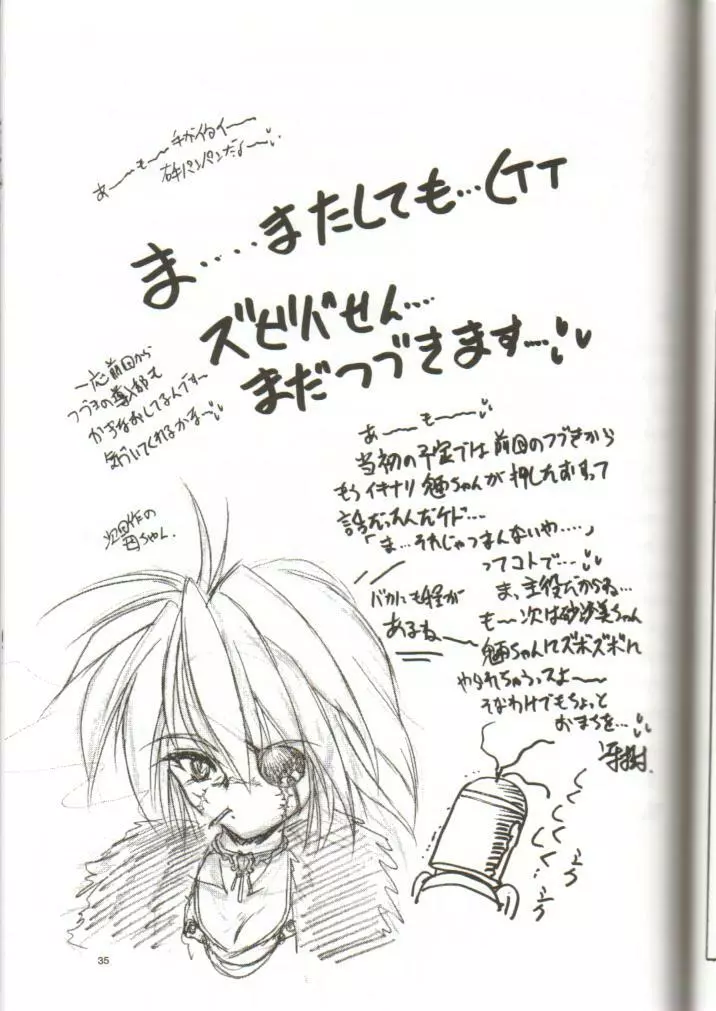 あーもー
手がイタイー
右手パンパンだよー
ま‥‥またしても…(TT
ズビバせん‥‥
まだつづきます…
一応前回から
つづきの導入部も
かきなおしてるんですー
気づいてくれるかなー
あーもー
当初の予定では前回のつづきから
もうイキナリ 魎ちゃんが押したおすって
話だったんだケド…
「ま…それじゃつまんないや‥‥」
ってコトで…
ま、主役だからね…
も〜次は砂沙美ちゃん
魎ちゃんにズボズボに
やられちゃうっスよ〜
そなわけでもちょっと
おまちを…
バカにも程が
あるね
次回作の
冴樹.
35